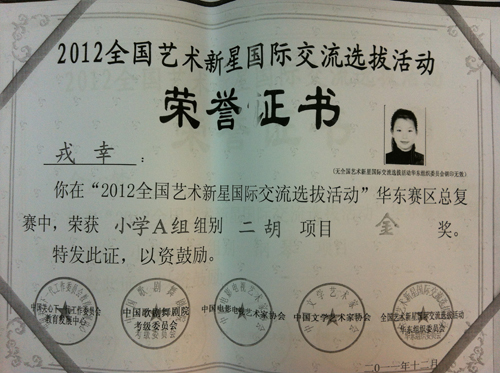 2012全国艺术新星国际交流选拔活动
荣誉证书
(无全国艺术新星国际交流选拔活动华东组织委员会钢印无效)
戎幸：
你在“2012全国艺术新星国际交流选拔活动”华东赛区总复
赛中，荣获 小学A组组别 二胡 项目 金 奖。
特发此证，以资鼓励。
中国关心下一代工作委员会
教育发展中心
中国歌剧舞剧院
考级委员会
中国电影电视艺术家协会
中国文学艺术家协会
全国艺术新星国际交流选拔活动
华东组织委员会
二〇一二年十二月